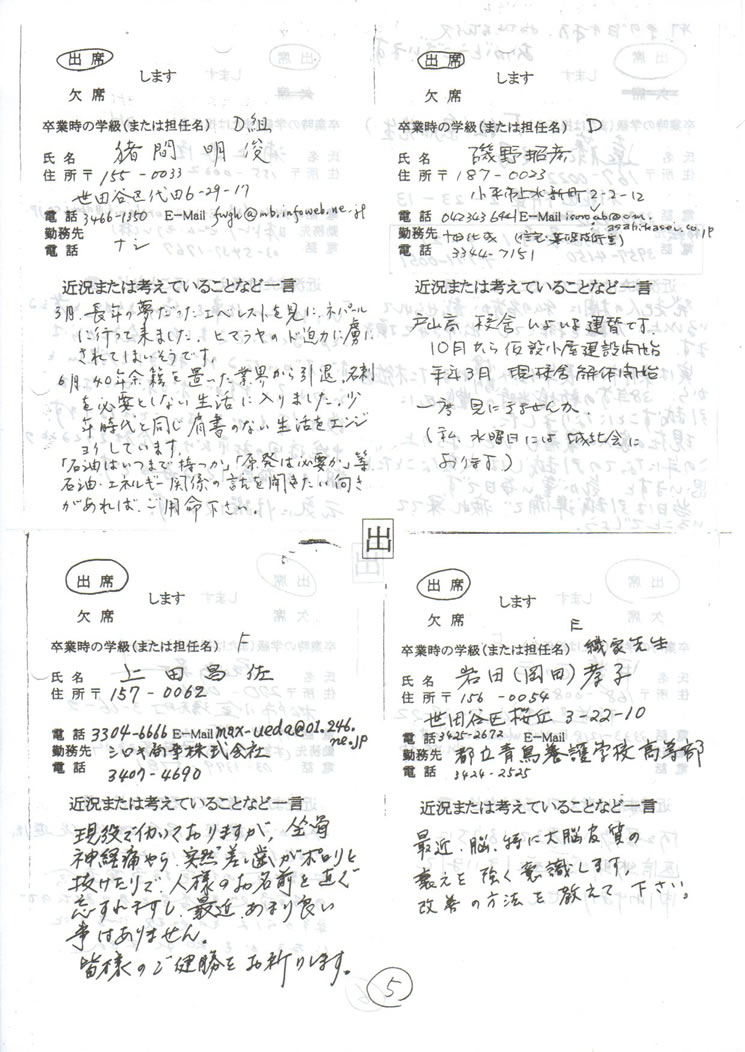 出席
します
欠席
卒業時の学級(または担任名) D組
氏名 猪間 明俊
住所〒 155-0033
世田谷区代田6-29-17
電話 3466-1350 E-Mail fwgk@mb.infoweb.ne.jp
勤務先 ナシ
電話
近況または考えていることなど一言
3月.長年の夢だったエベレストを見に、ネパール
に行って来ました。ヒマラヤのド迫力に虜に
されてしまいそうです。
6月.40年余籍を置いた業界から引退。名刺
を必要としない生活に入りました。少
年時代と同じ肩書のない生活をエンジ
ョイしています。
「石油はいつまで持つか」「原発は必要か」等
石油・エネルギー関係の話を聞きたい向き
があれば、ご用命下さい。
出席
します
欠席
卒業時の学級(または担任名) D
氏名 磯野
住所〒 187-0023
小平市上水新町2-2-12
電話 042 343 6441 E-Mail
asahi-kasei.co.jp
勤務先 旭化成
電話 3344-7151
近況または考えていることなど一言
戸山高 校舎 いよいよ建替です.
10月から仮設小屋建設開始
年3月 現校舎解体開始
一度見にきませんか.
(私、水曜日には城北会に
おります)
出
出席
します
欠席
卒業時の学級(または担任名) F
氏名 上田昌佐
住所〒 157-0062
電話 3304-6666 E-Mail max-ueda@01.246.ne.jp
勤務先 シロキ商事株式会社
電話 3409-4690
近況または考えていることなど一言
現役で働いておりますが、坐骨
神経痛やら、突然差し歯がポロリと
抜けたりで、人様のお名前を直ぐ
忘すれますし、最近あまり良い
事はありません。
皆様のご健勝をお祈りします。
出席
します
欠席
卒業時の学級(または担任名) E 織家先生
氏名 岩田(岡田)孝子
住所〒 156-0054
世田谷区桜丘 3-22-10
電話 3425-2672 E-Mail
勤務先 都立青鳥養護学校高等部
電話 3424-2525
近況または考えていることなど一言
最近、脳、特に大脳皮質の
衰えを強く意識します。
改善の方法を教えて下さい。
5